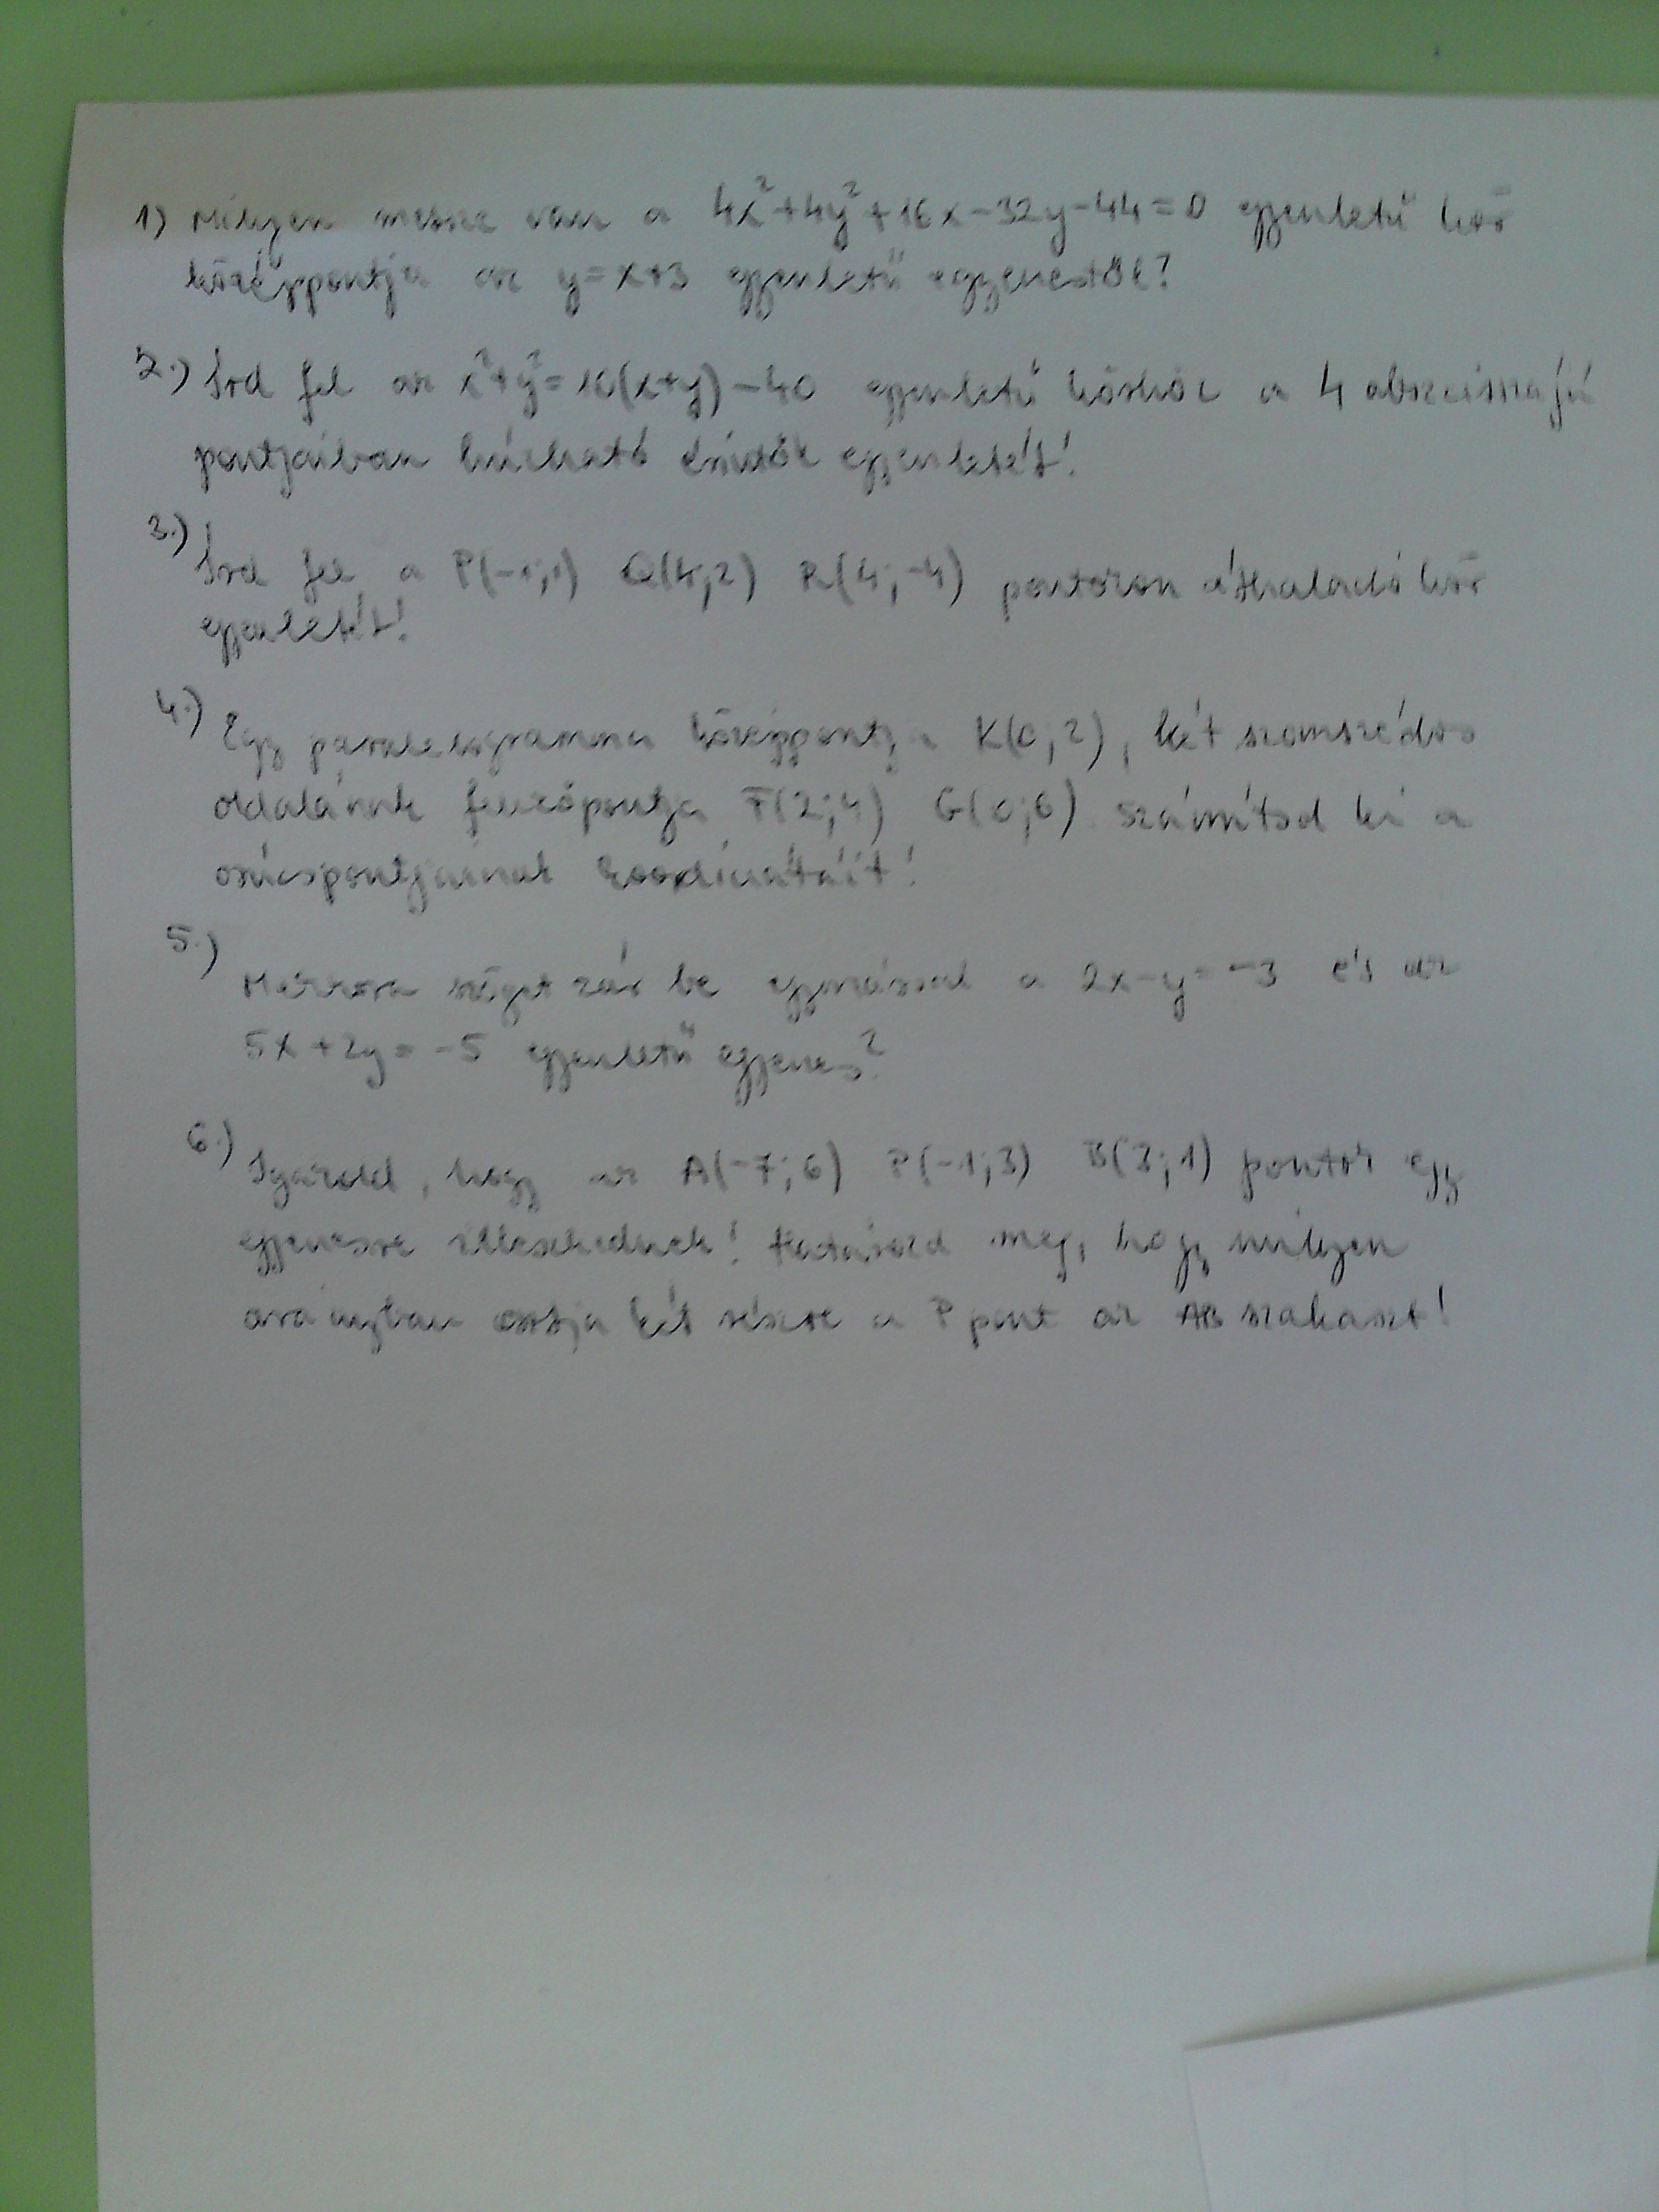 1) Milyen messze van a 4x²+4y²+16x-32y-44=0 egyenletű kör
középpontja az y=x+3 egyenletű egyenestől?
2.) Írd fel az x²+y²=10(x+y)-40 egyenletű körhöz a 4 abszcisszájú
pontjaiban húzható érintők egyenletét!
3.) Írd fel a P(-1;1) Q(4;2) R(4;-4) pontokon áthaladó kör
egyenletét!
4.) Egy paralelogramma középpontja K(0;2), két szomszédos
oldalának felezőpontja F(2;4) G(0;6) számítsd ki a
csúcspontjainak koordinátáit!
5.) Mekkora szöget zár be egymással a 2x-y=-3 és az
5x+2y=-5 egyenletű egyenes?
6.) Igazold, hogy az A(-7;6) P(-1;3) B(3;1) pontok egy
egyenesre illeszkednek! Határozd meg, hogy milyen
arányban osztja két részre a P pont az AB szakaszt!